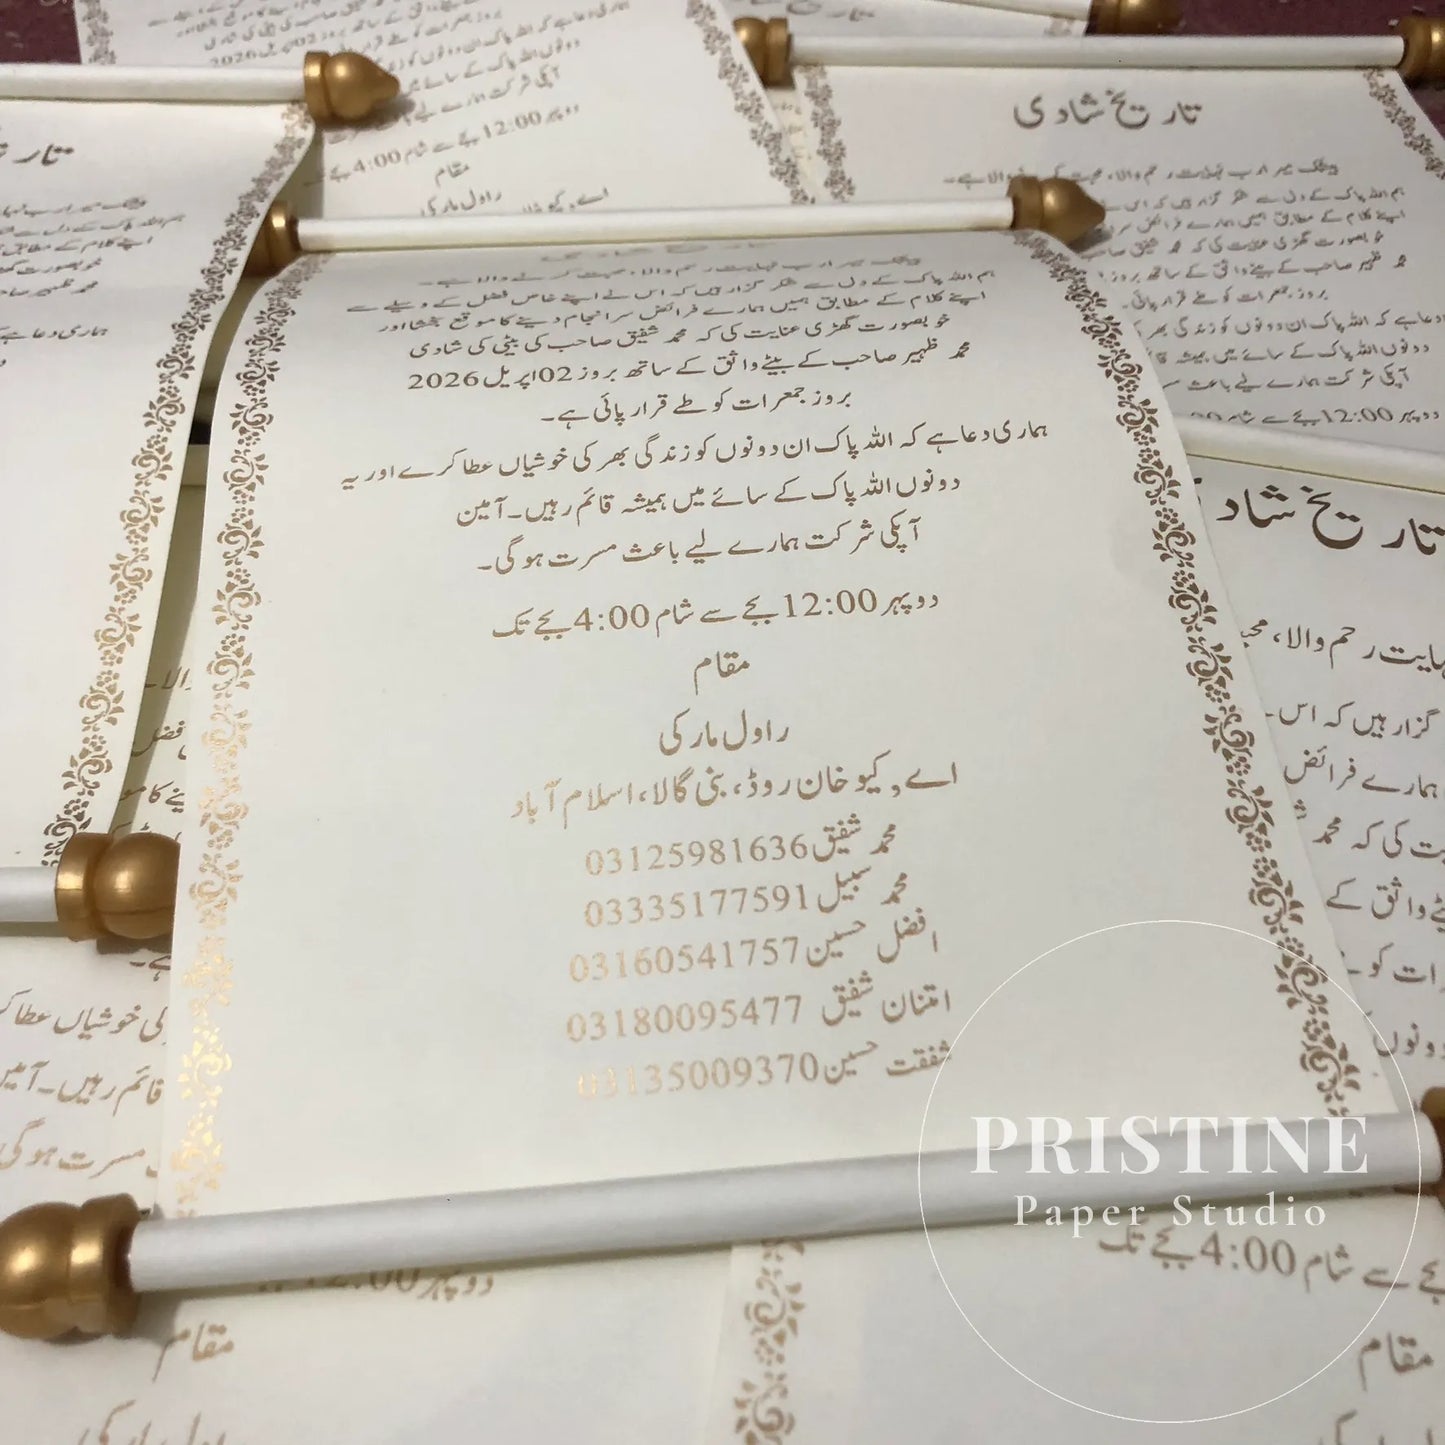 تاریخ شادی
بیشک میرا رب نہایت رحم والا، محبت کرنے والا ہے۔
ہم اللہ پاک کے دل سے شکر گزار ہیں کہ اس نے اپنے خاص فضل کے وسیلے سے
اپنے کلام کے مطابق ہمیں ہمارے فرائض سرانجام دینے کا موقع بخشا اور
خوبصورت گھڑی عنایت کی کہ محمد شفیق صاحب کی بیٹی کی شادی
محمد ظہیر صاحب کے بیٹے واثق کے ساتھ بروز 02 اپریل 2026
بروز جمعرات کو طے قرار پائی ہے۔
ہماری دعا ہے کہ اللہ پاک ان دونوں کو زندگی بھر کی خوشیاں عطا کرے اور یہ
دونوں اللہ پاک کے سائے میں ہمیشہ قائم رہیں۔ آمین
آپکی شرکت ہمارے لیے باعث مسرت ہوگی۔
دوپہر 12:00 بجے سے شام 4:00 بجے تک
مقام
راول مارکی
اے کیو خان روڈ، بنی گالا، اسلام آباد
محمد شفیق 03125981636
محمد سبیل 03335177591
افضل حسین 03160541757
امتنان شفیق 03180095477
شفقت حسین 03135009370
PRISTINE
Paper Studio